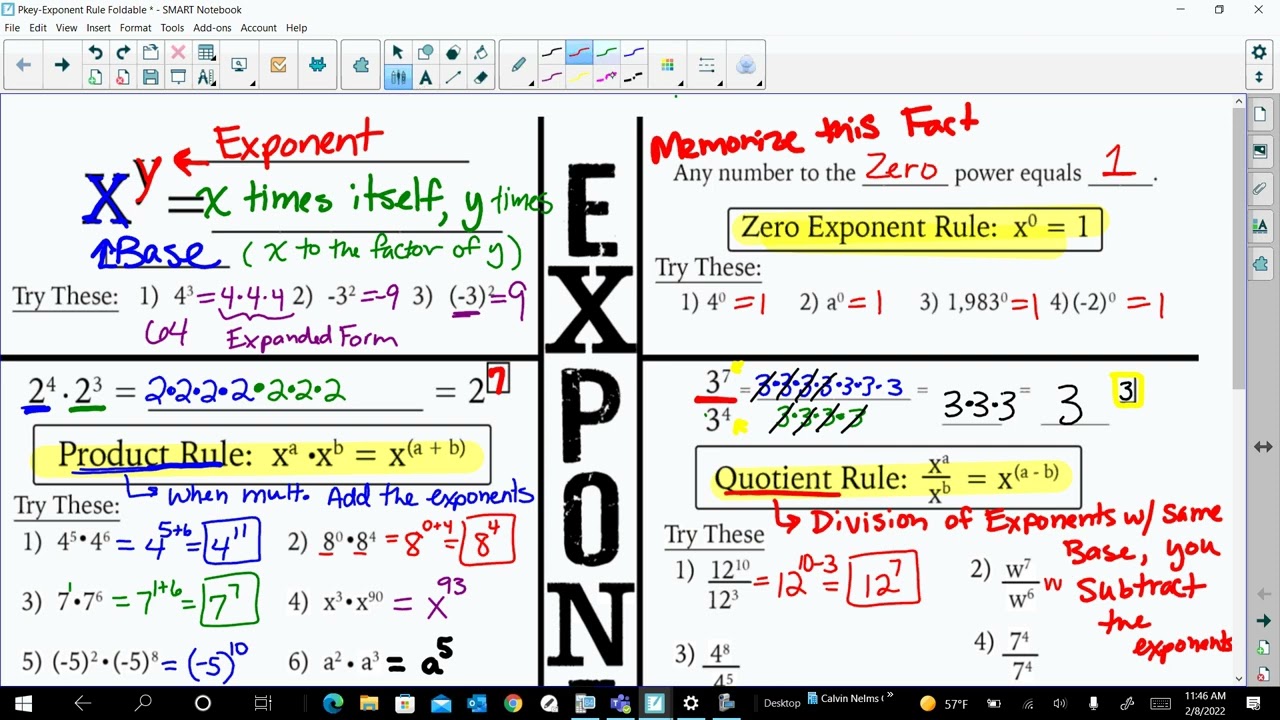 Pkey-Exponent Rule Foldable * - SMART Notebook
File Edit View Insert Format Tools Add-ons Account Help
x^y ← Exponent
= x times itself, y times
↑Base (x to the factor of y)
Try These: 1) 4³ = 4·4·4 2) -3² = -9 3) (-3)² = 9
64 Expanded Form
2⁴ · 2³ = 2·2·2·2·2·2·2 = 2^7
Product Rule: xᵃ •xᵇ = x^(a + b)
↳ when mult. Add the exponents
Try These:
1) 4⁵ • 4⁶ = 4^5+6 = 4^11 2) 8⁰ • 8⁴ = 8^0+4 = 8^4
3) 7^1 • 7⁶ = 7^1+6 = 7^7 4) x³ • x⁹⁰ = x^93
5) (-5)² • (-5)⁸ = (-5)^10 6) a² • a³ = a^5
E
X
P
O
N
Memorize this Fact
Any number to the Zero power equals 1.
Zero Exponent Rule: x⁰ = 1
Try These:
1) 4⁰ = 1 2) a⁰ = 1 3) 1,983⁰ = 1 4) (-2)⁰ = 1
3⁷/3⁴ = 3·3·3·3·3·3·3/3·3·3·3 = 3·3·3 = 3 3
Quotient Rule: xᵃ/xᵇ = x^(a - b)
↳ Division of Exponents w/ Same
Base, you
Subtract
the
exponents
Try These
1) 12¹⁰/12³ = 12^10-3 = 12^7 2) w⁷/w⁶ w
3) 4⁸/4⁵ 4) 7⁴/7⁴
Desktop Calvin Nelms ( » 57°F 11:46 AM
2/8/2022